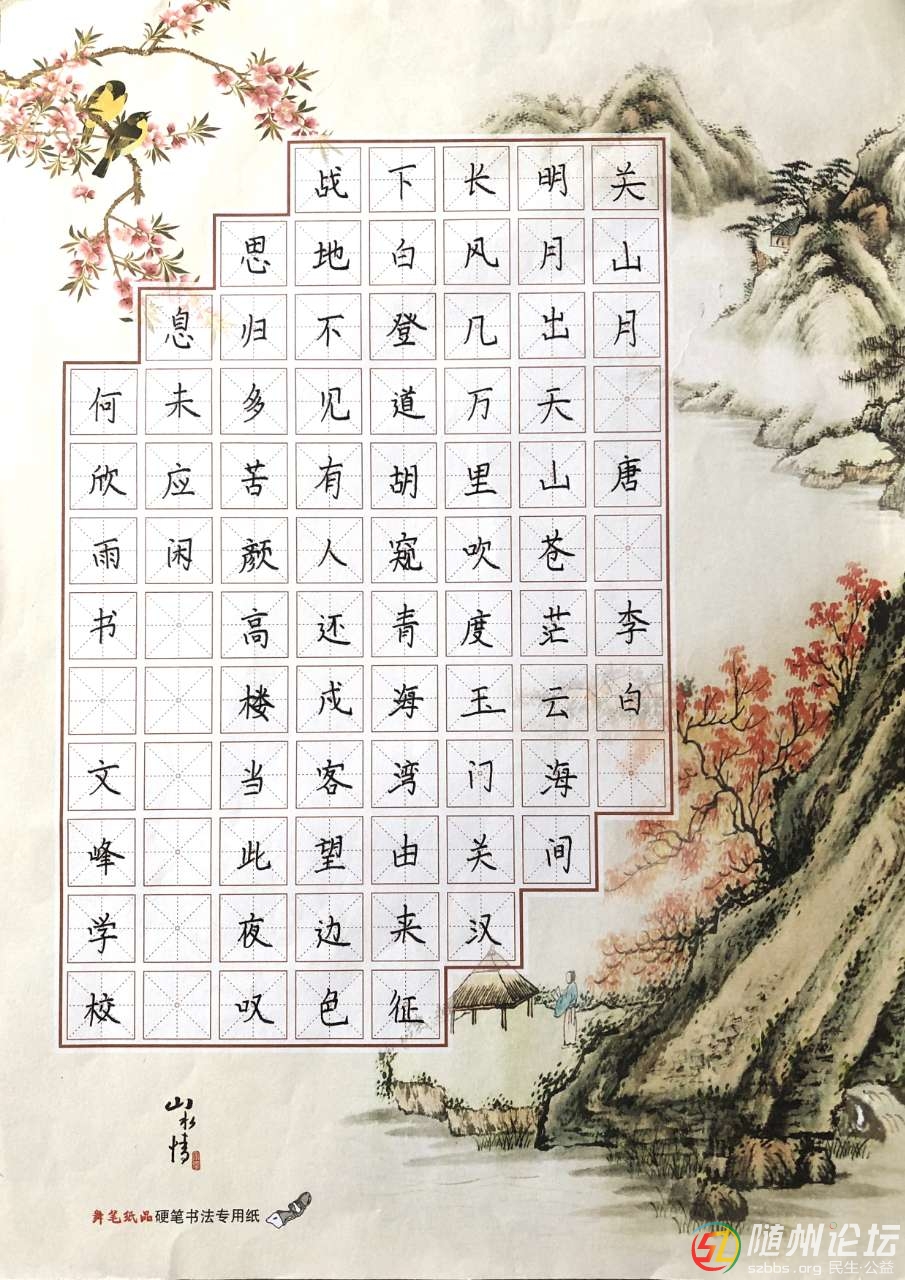 关山月 唐 李白
明月出天山苍茫云海间
长风几万里吹度玉门关汉
下白登道胡窥青海湾由来征
战地不见有人还戍客望边色
思归多苦颜高楼当此夜叹
息未应闲
何欣雨书 文峰学校
山水情
舞笔纸品硬笔书法专用纸
随州论坛
szbbs.org 民生·公益